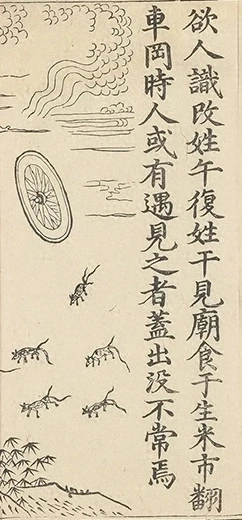 欲人識改姓午復姓干見廟食于生米市翻
車岡時人或有遇見之者蓋出没不常焉